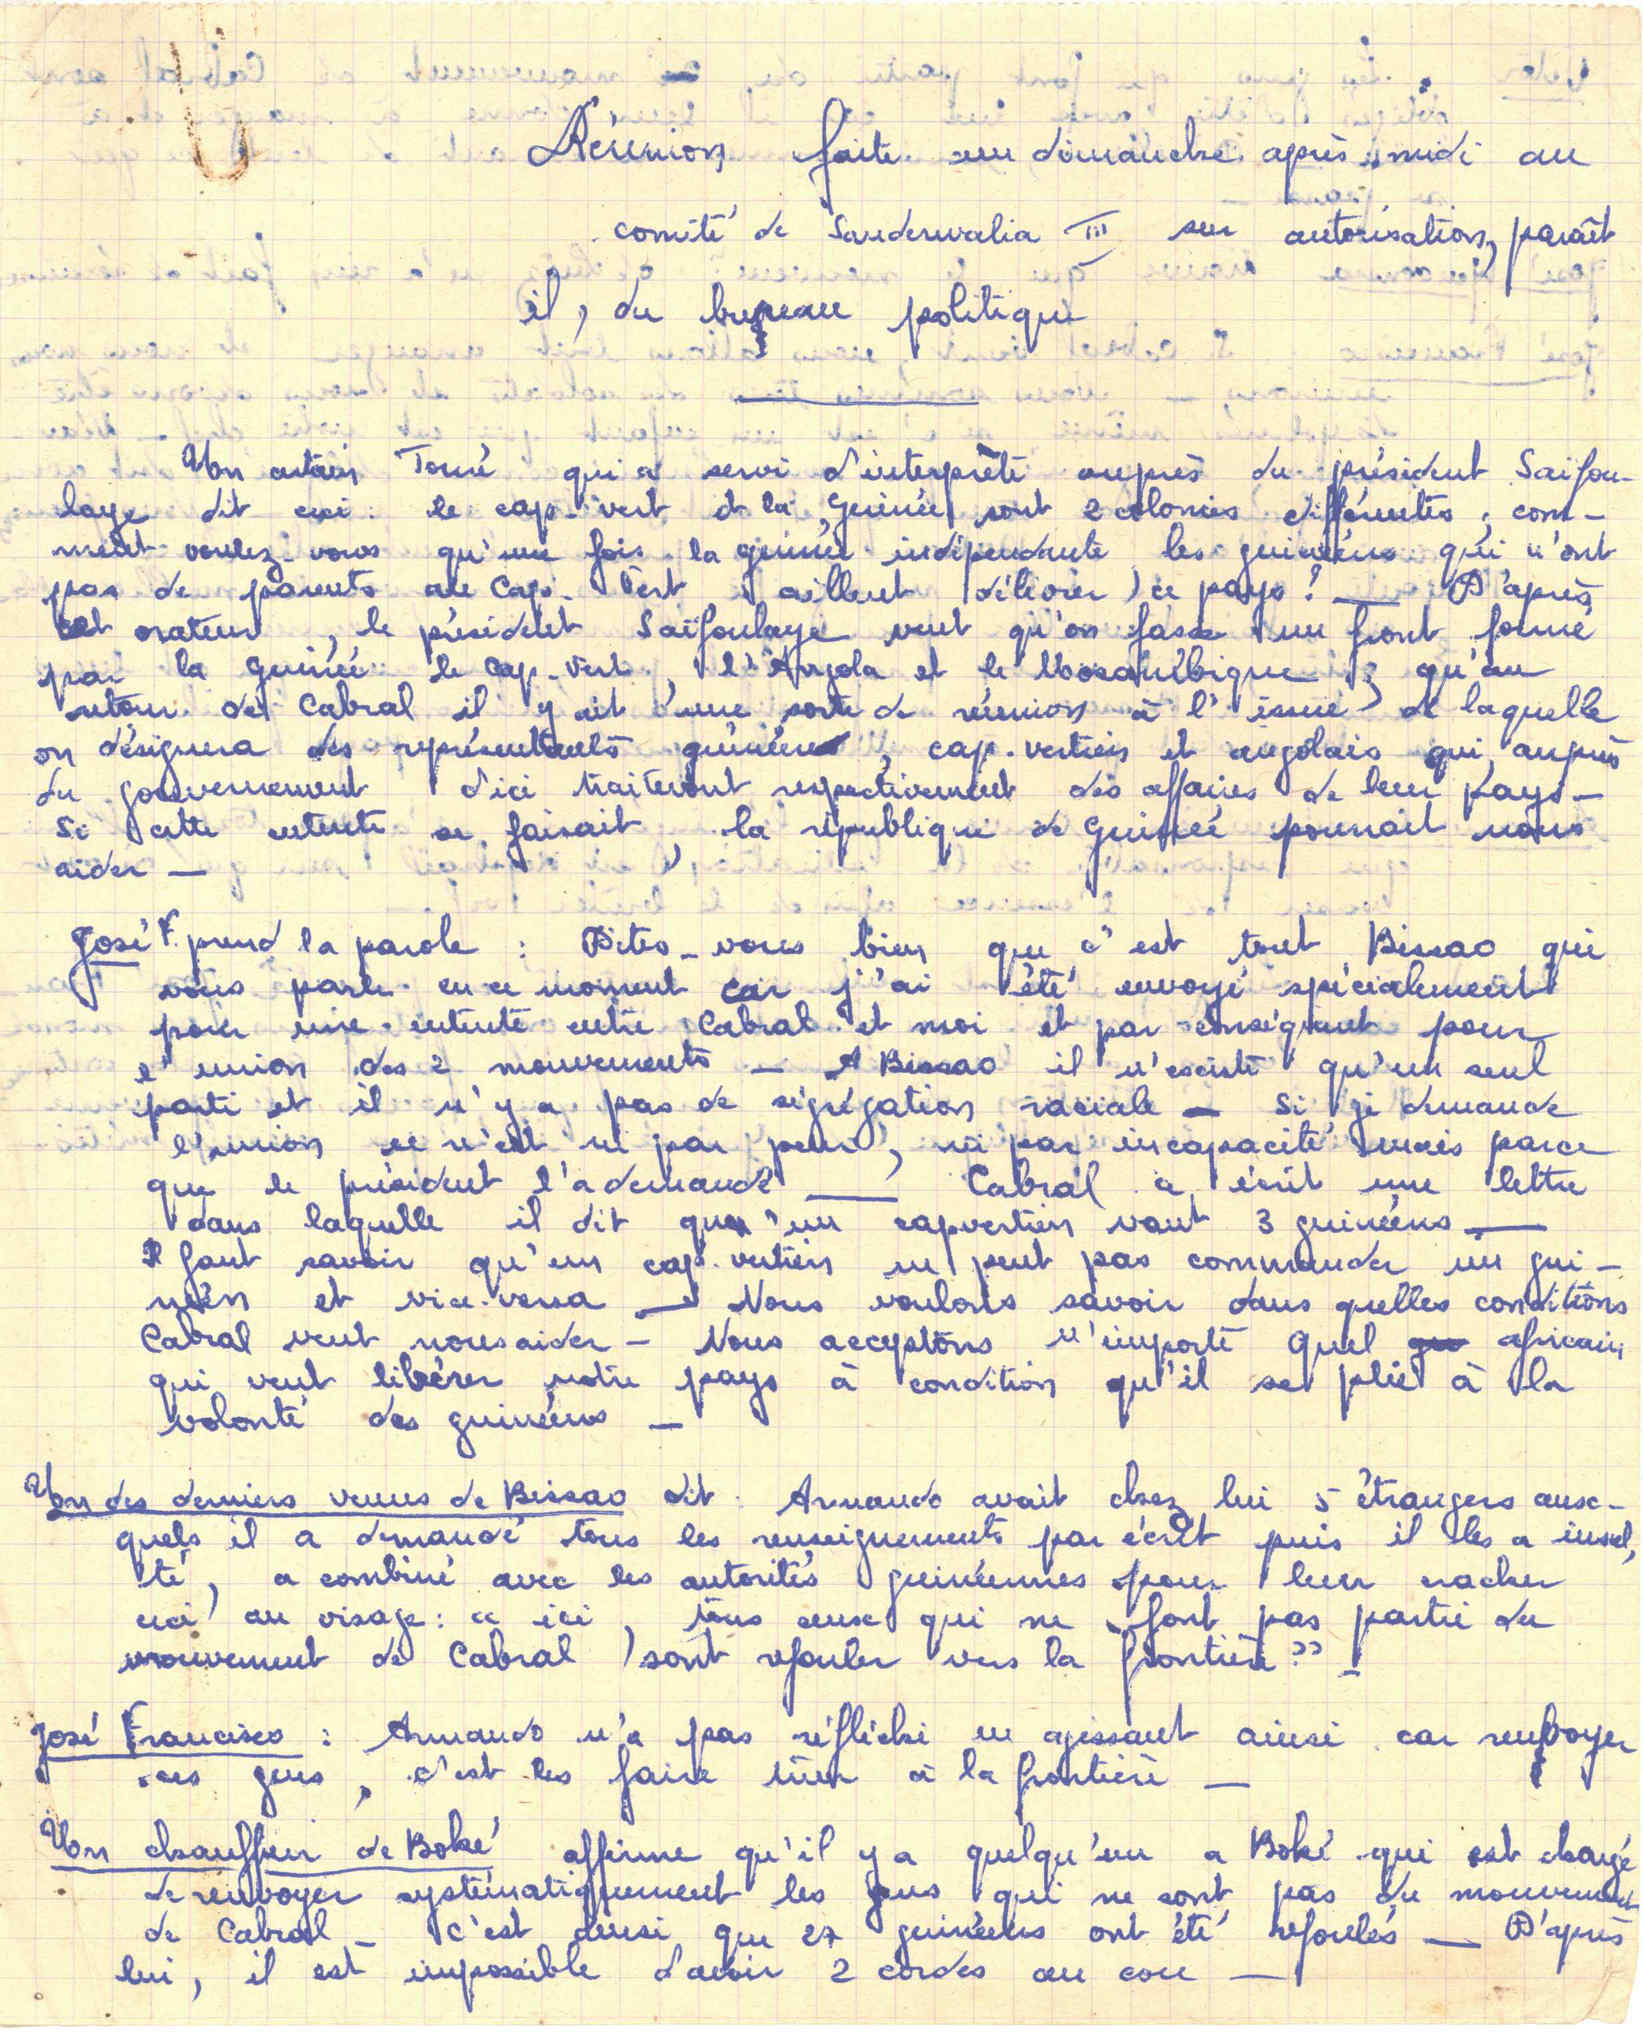 Réunion faite un dimanche après-midi au
comité de Sanderwalia III sur autorisation, paraît
il, du bureau politique
Un certain Touré qui a servi d'interprète auprès du président Saifou-
laye dit ceci : le cap-vert et la Guinée sont 2 colonies différentes, com-
ment voulez-vous qu'une fois la guinée indépendante les guinéens qui n'ont
pas de parents au Cap-Vert aillent délivrer ce pays ? — D'après
cet orateur, le président Saïfoulaye veut qu'on fasse un front formé
par la Guinée le Cap-Vert, l'Angola et le Mozambique ; qu'au
retour de Cabral il y ait une sorte de réunion à l'issue de laquelle
on désignera des représentants guinéens, cap-vertien et angolais qui, auprès
du gouvernement d'ici traiteront respectivement des affaires de leur pays —
Si cette entente se faisait, la république de Guinée pourrait nous
aider —
José F. prend la parole : Dites-vous bien que c'est tout Bissao qui
vous parle en ce moment car j'ai été envoyé spécialement
pour une entente entre Cabral et moi et par conséquent pour
l'union des 2 mouvements — A Bissao il n'existe qu'un seul
parti et il n'y a pas de ségrégation raciale — Si je demande
l'union ce n'est ni par peur, ni par incapacité mais parce
que le président l'a demandé — Cabral a écrit une lettre
dans laquelle il dit qu'un capvertien vaut 3 guinéens —
Il faut savoir qu'un cap-vertien ne peut pas commander un gui-
néen et vice-versa — Nous voulons savoir dans quelles conditions
Cabral veut nous aider — Nous acceptons n'importe quel africain
qui veut libérer notre pays à condition qu'il se plie à la
volonté des guinéens —
Un des derniers venus de Bissao dit : Armando avait chez lui 5 étrangers aux-
quels il a demandé tous les renseignements par écrit puis il les a insul-
té, a combiné avec les autorités guinéennes pour leur cracher
ceci au visage : « ici, tous ceux qui ne font pas partie du
mouvement de Cabral sont refouler vers la frontière » —
José Francisco : Armando n'a pas réfléchi en agissant ainsi car renvoyer
ces gens, c'est les faire tuer à la frontière —
Un chauffeur de Boké affirme qu'il y a quelqu'un a Boké qui est chargé
de renvoyer systématiquement les gens qui ne sont pas du mouvement
de Cabral — C'est ainsi que 27 guinéens ont été refoulés — D'après
lui, il est impossible d'avoir 2 cordes au cou —